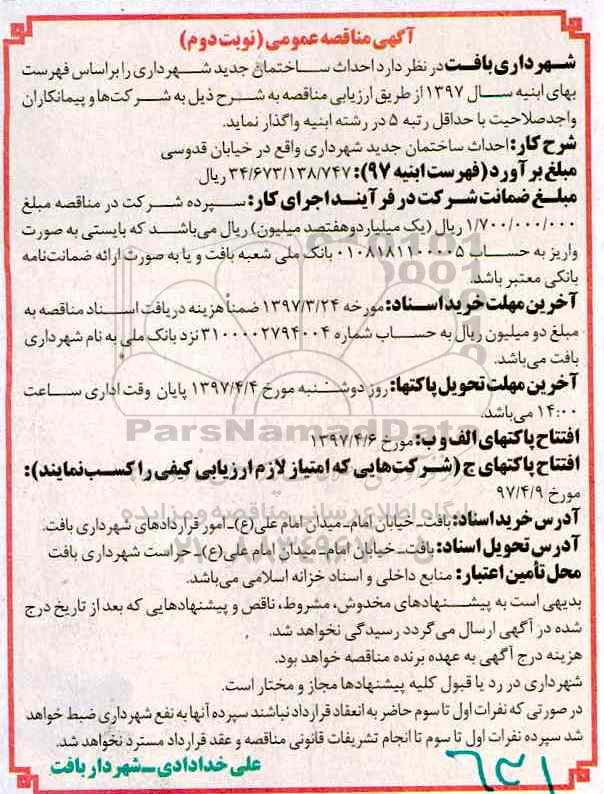 آگهی مناقصه عمومی (نوبت دوم)
شهرداری بافت در نظر دارد احداث ساختمان جدید شهرداری را براساس فهرست
بهای ابنیه سال ۱۳۹۷ از طریق ارزیابی مناقصه به شرح ذیل به شرکت‌ها و پیمانکاران
واجدصلاحیت با حداقل رتبه ۵ در رشته ابنیه واگذار نماید.
شرح کار: احداث ساختمان جدید شهرداری واقع در خیابان قدوسی
مبلغ برآورد (فهرست ابنیه ۹۷): ۳۴/۶۷۳/۱۳۸/۷۴۷ ریال
مبلغ ضمانت شرکت در فرآیند اجرای کار: سپرده شرکت در مناقصه مبلغ
۱/۷۰۰/۰۰۰/۰۰۰ ریال (یک میلیارد وهفتصد میلیون) ریال می‌باشد که بایستی به صورت
واریز به حساب ۰۱۰۸۱۸۱۱۰۰۰۰۵ بانک ملی شعبه بافت و یا به صورت ارائه ضمانت‌نامه
بانکی معتبر باشد.
آخرین مهلت خرید اسناد: مورخه ۱۳۹۷/۳/۲۴ ضمناً هزینه دریافت اسناد مناقصه به
مبلغ دو میلیون ریال به حساب شماره ۳۱۰۰۰۰۲۷۹۴۰۰۴ نزد بانک ملی به نام شهرداری
بافت می‌باشد.
آخرین مهلت تحویل پاکتها: روز دوشنبه مورخ ۱۳۹۷/۴/۴ پایان وقت اداری ساعت
۱۴:۰۰ می‌باشد.
افتتاح پاکتهای الف و ب: مورخ ۱۳۹۷/۴/۶
افتتاح پاکتهای ج (شرکت‌هایی که امتیاز لازم ارزیابی کیفی را کسب نمایند):
مورخ ۹۷/۴/۹
آدرس خرید اسناد: بافت- خیابان امام- میدان امام علی(ع)- امور قراردادهای شهرداری بافت.
آدرس تحویل اسناد: بافت- خیابان امام- میدان امام علی(ع)- حراست شهرداری بافت
محل تأمین اعتبار: منابع داخلی و اسناد خزانه اسلامی می‌باشد.
بدیهی است به پیشنهادهای مخدوش، مشروط، ناقص و پیشنهادهایی که بعد از تاریخ درج
شده در آگهی ارسال می‌گردد رسیدگی نخواهد شد.
هزینه درج آگهی به عهده برنده مناقصه خواهد بود.
شهرداری در رد یا قبول کلیه پیشنهادها مجاز و مختار است.
در صورتی که نفرات اول تا سوم حاضر به انعقاد قرارداد نباشند سپرده آنها به نفع شهرداری ضبط خواهد
شد سپرده نفرات اول تا سوم تا انجام تشریفات قانونی مناقصه و عقد قرارداد مسترد نخواهد شد.
علی خدادادی- شهردار بافت
ParsNamadData
پایگاه اطلاع رسانی مناقصه و مزایده